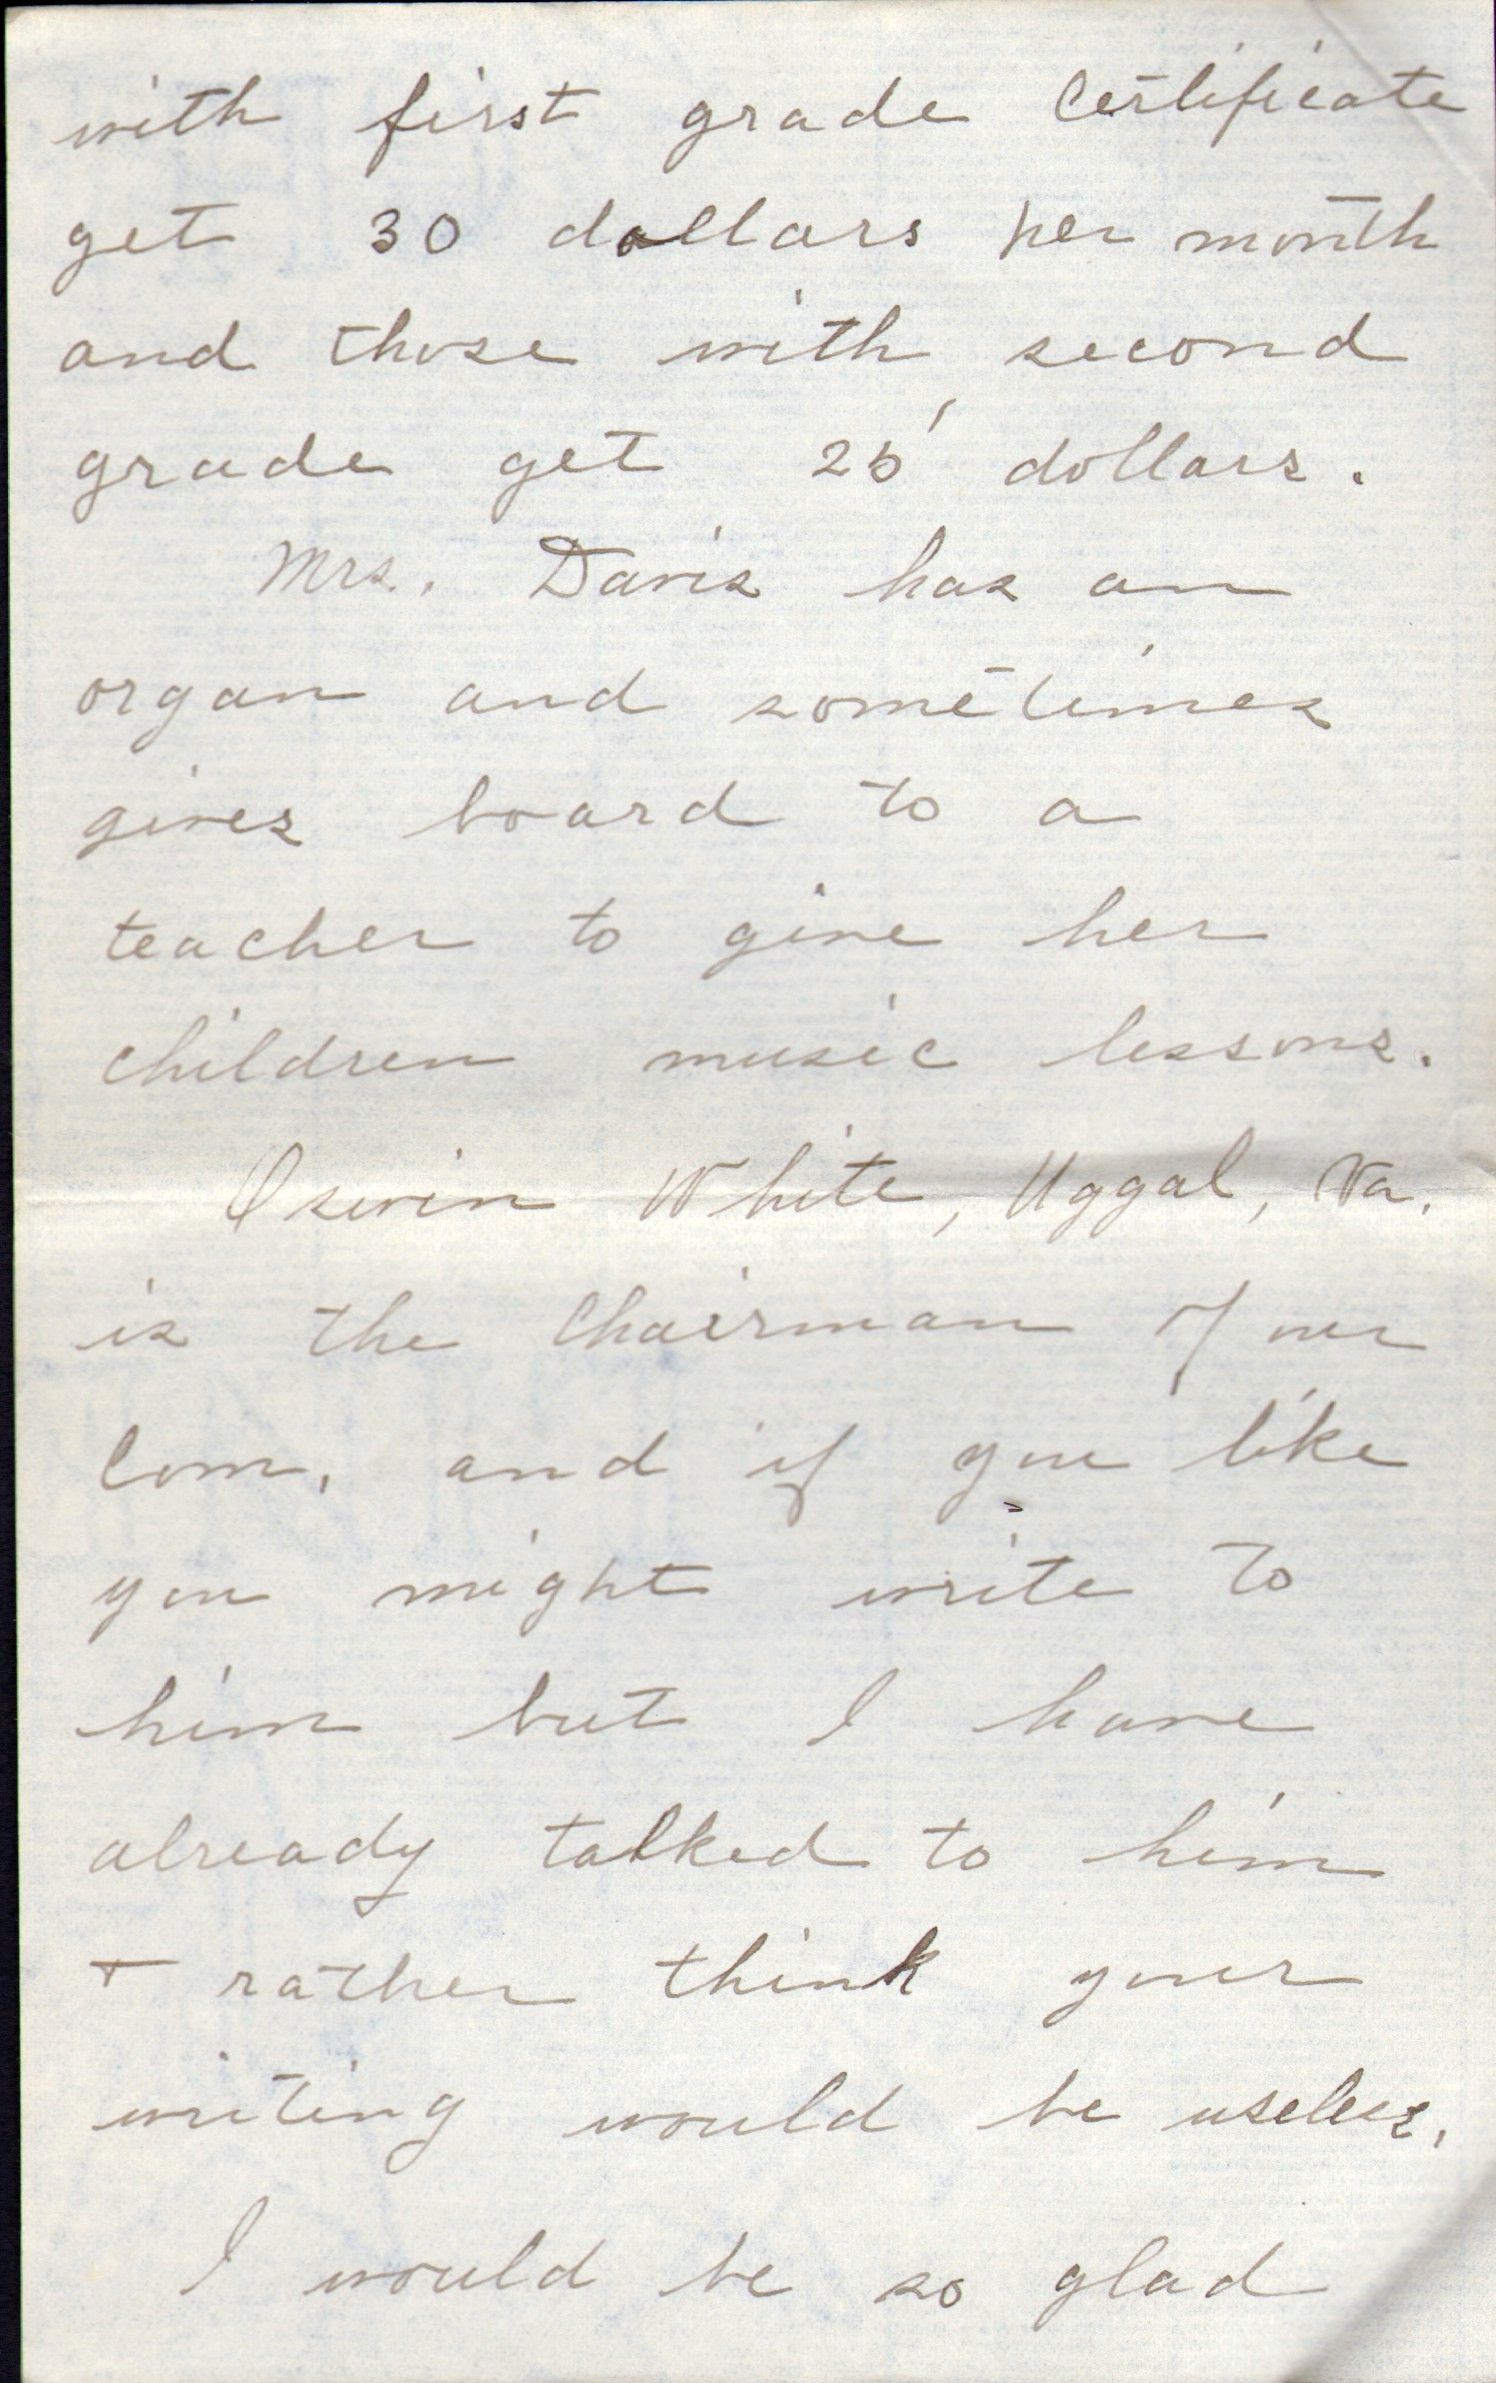 with first grade Certificate
get 30 dollars per month
and those with second
grade get 25 dollars.
Mrs. Davis has an
organ and sometimes
gives board to a
teacher to give her
children music lessons.
White, Uggal, Va.
is the Chairman of our
Com, and if you like
you might write to
him but I have
already talked to him
+ rather think your
writing would be useless,
I would be so glad